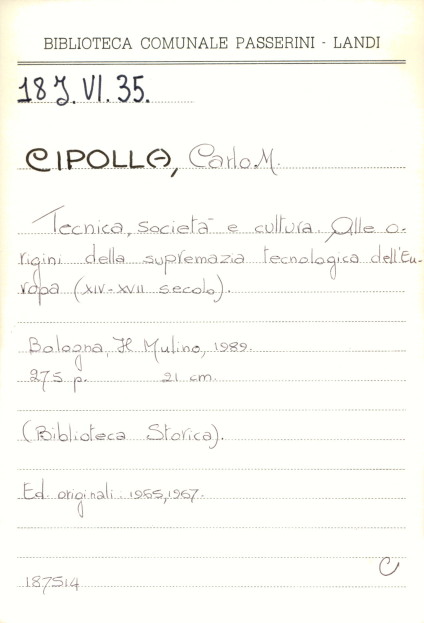 BIBLIOTECA COMUNALE PASSERINI - LANDI
18 J. VI. 35.
CIPOLLA, Carlo M.
Tecnica, società e cultura. Alle o-
rigini della supremazia tecnologica dell'Eu-
ropa (XIV-XVII secolo).
Bologna, Il Mulino, 1989.
275 p. 21 cm.
(Biblioteca Storica).
Ed. originali: 1965, 1967.
C
187514